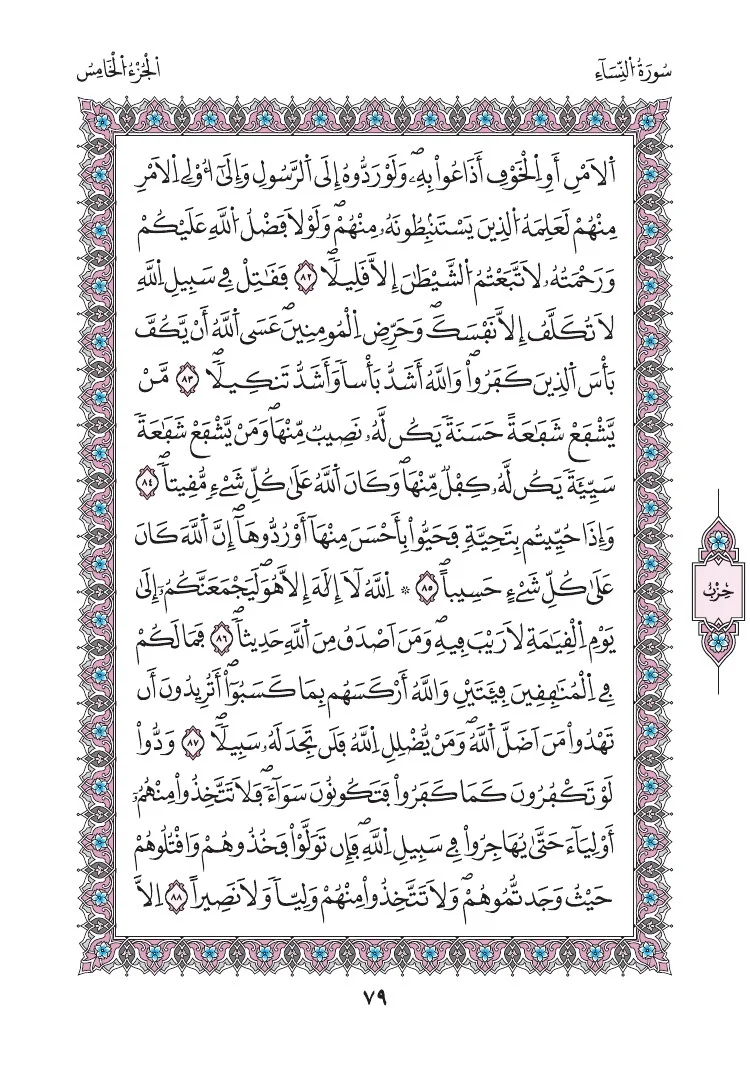 سُورَةُ النِّسَآءِ
اَلْجُزْءُ الْخَامِسُ
اَ۬لَامْنِ أَوِ اِ۬لْخَوْفِ أَذَاعُواْ بِهِۦۖ وَلَوْ رَدُّوهُ إِلَى اَ۬لرَّسُولِ وَإِلَىٰٓ أُوْلِے اِ۬لَامْرِ
مِنْهُمْ لَعَلِمَهُ اُ۬لذِينَ يَسْتَنۢبِطُونَهُۥ مِنْهُمْۖ وَلَوْلَا فَضْلُ اُ۬للَّهِ عَلَيْكُمْ
وَرَحْمَتُهُۥ لَاتَّبَعْتُمُ اُ۬لشَّيْطَٰنَ إِلَّا قَلِيلاٗۖ ٨٢ فَقَٰتِلْ فِے سَبِيلِ اِ۬للَّهِ
لَا تُكَلَّفُ إِلَّا نَفْسَكَۖ وَحَرِّضِ اِ۬لْمُومِنِينَۖ عَسَى اَ۬للَّهُ أَنْ يَّكُفَّ
بَأْسَ اَ۬لذِينَ كَفَرُواْۖ وَاللَّهُ أَشَدُّ بَأْساٗ وَأَشَدُّ تَنكِيلاٗۖ ٨٣ مَّنْ
يَّشْفَعْ شَفَٰعَةً حَسَنَةٗ يَكُن لَّهُۥ نَصِيبٞ مِّنْهَاۖ وَمَنْ يَّشْفَعْ شَفَٰعَةٗ
سَيِّئَةٗ يَكُن لَّهُۥ كِفْلٞ مِّنْهَاۖ وَكَانَ اَ۬للَّهُ عَلَىٰ كُلِّ شَےْءٖ مُّقِيتاٗۖ ٨٤
وَإِذَا حُيِّيتُم بِتَحِيَّةٖ فَحَيُّواْ بِأَحْسَنَ مِنْهَآ أَوْ رُدُّوهَآۖ إِنَّ اَ۬للَّهَ كَانَ
عَلَىٰ كُلِّ شَےْءٍ حَسِيباًۖ ٨٥ * اِ۬للَّهُ لَآ إِلَٰهَ إِلَّا هُوَۖ لَيَجْمَعَنَّكُمُۥٓ إِلَىٰ
يَوْمِ اِ۬لْقِيَٰمَةِ لَا رَيْبَ فِيهِۖ وَمَنَ اَصْدَقُ مِنَ اَ۬للَّهِ حَدِيثاٗۖ ٨٦ فَمَا لَكُمْ
فِے اِ۬لْمُنَٰفِقِينَ فِئَتَيْنِ وَاللَّهُ أَرْكَسَهُم بِمَا كَسَبُوٓاْۖ أَتُرِيدُونَ أَن
تَهْدُواْ مَنَ اَضَلَّ اَ۬للَّهُۖ وَمَنْ يُّضْلِلِ اِ۬للَّهُ فَلَن تَجِدَ لَهُۥ سَبِيلاٗۖ ٨٧ وَدُّواْ
لَوْ تَكْفُرُونَ كَمَا كَفَرُواْ فَتَكُونُونَ سَوَآءٗۖ فَلَا تَتَّخِذُواْ مِنْهُمُۥٓ
أَوْلِيَآءَ حَتَّىٰ يُهَاجِرُواْ فِے سَبِيلِ اِ۬للَّهِۖ فَإِن تَوَلَّوْاْ فَخُذُوهُمْ وَاقْتُلُوهُمْ
حَيْثُ وَجَدتُّمُوهُمْۖ وَلَا تَتَّخِذُواْ مِنْهُمْ وَلِيّاٗ وَلَا نَصِيراً ٨٨ اِلَّا
حِزْبُ
٧٩